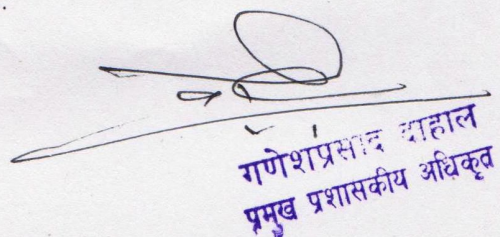 गणेशप्रसाद दाहाल
प्रमुख प्रशासकीय अधिकृत